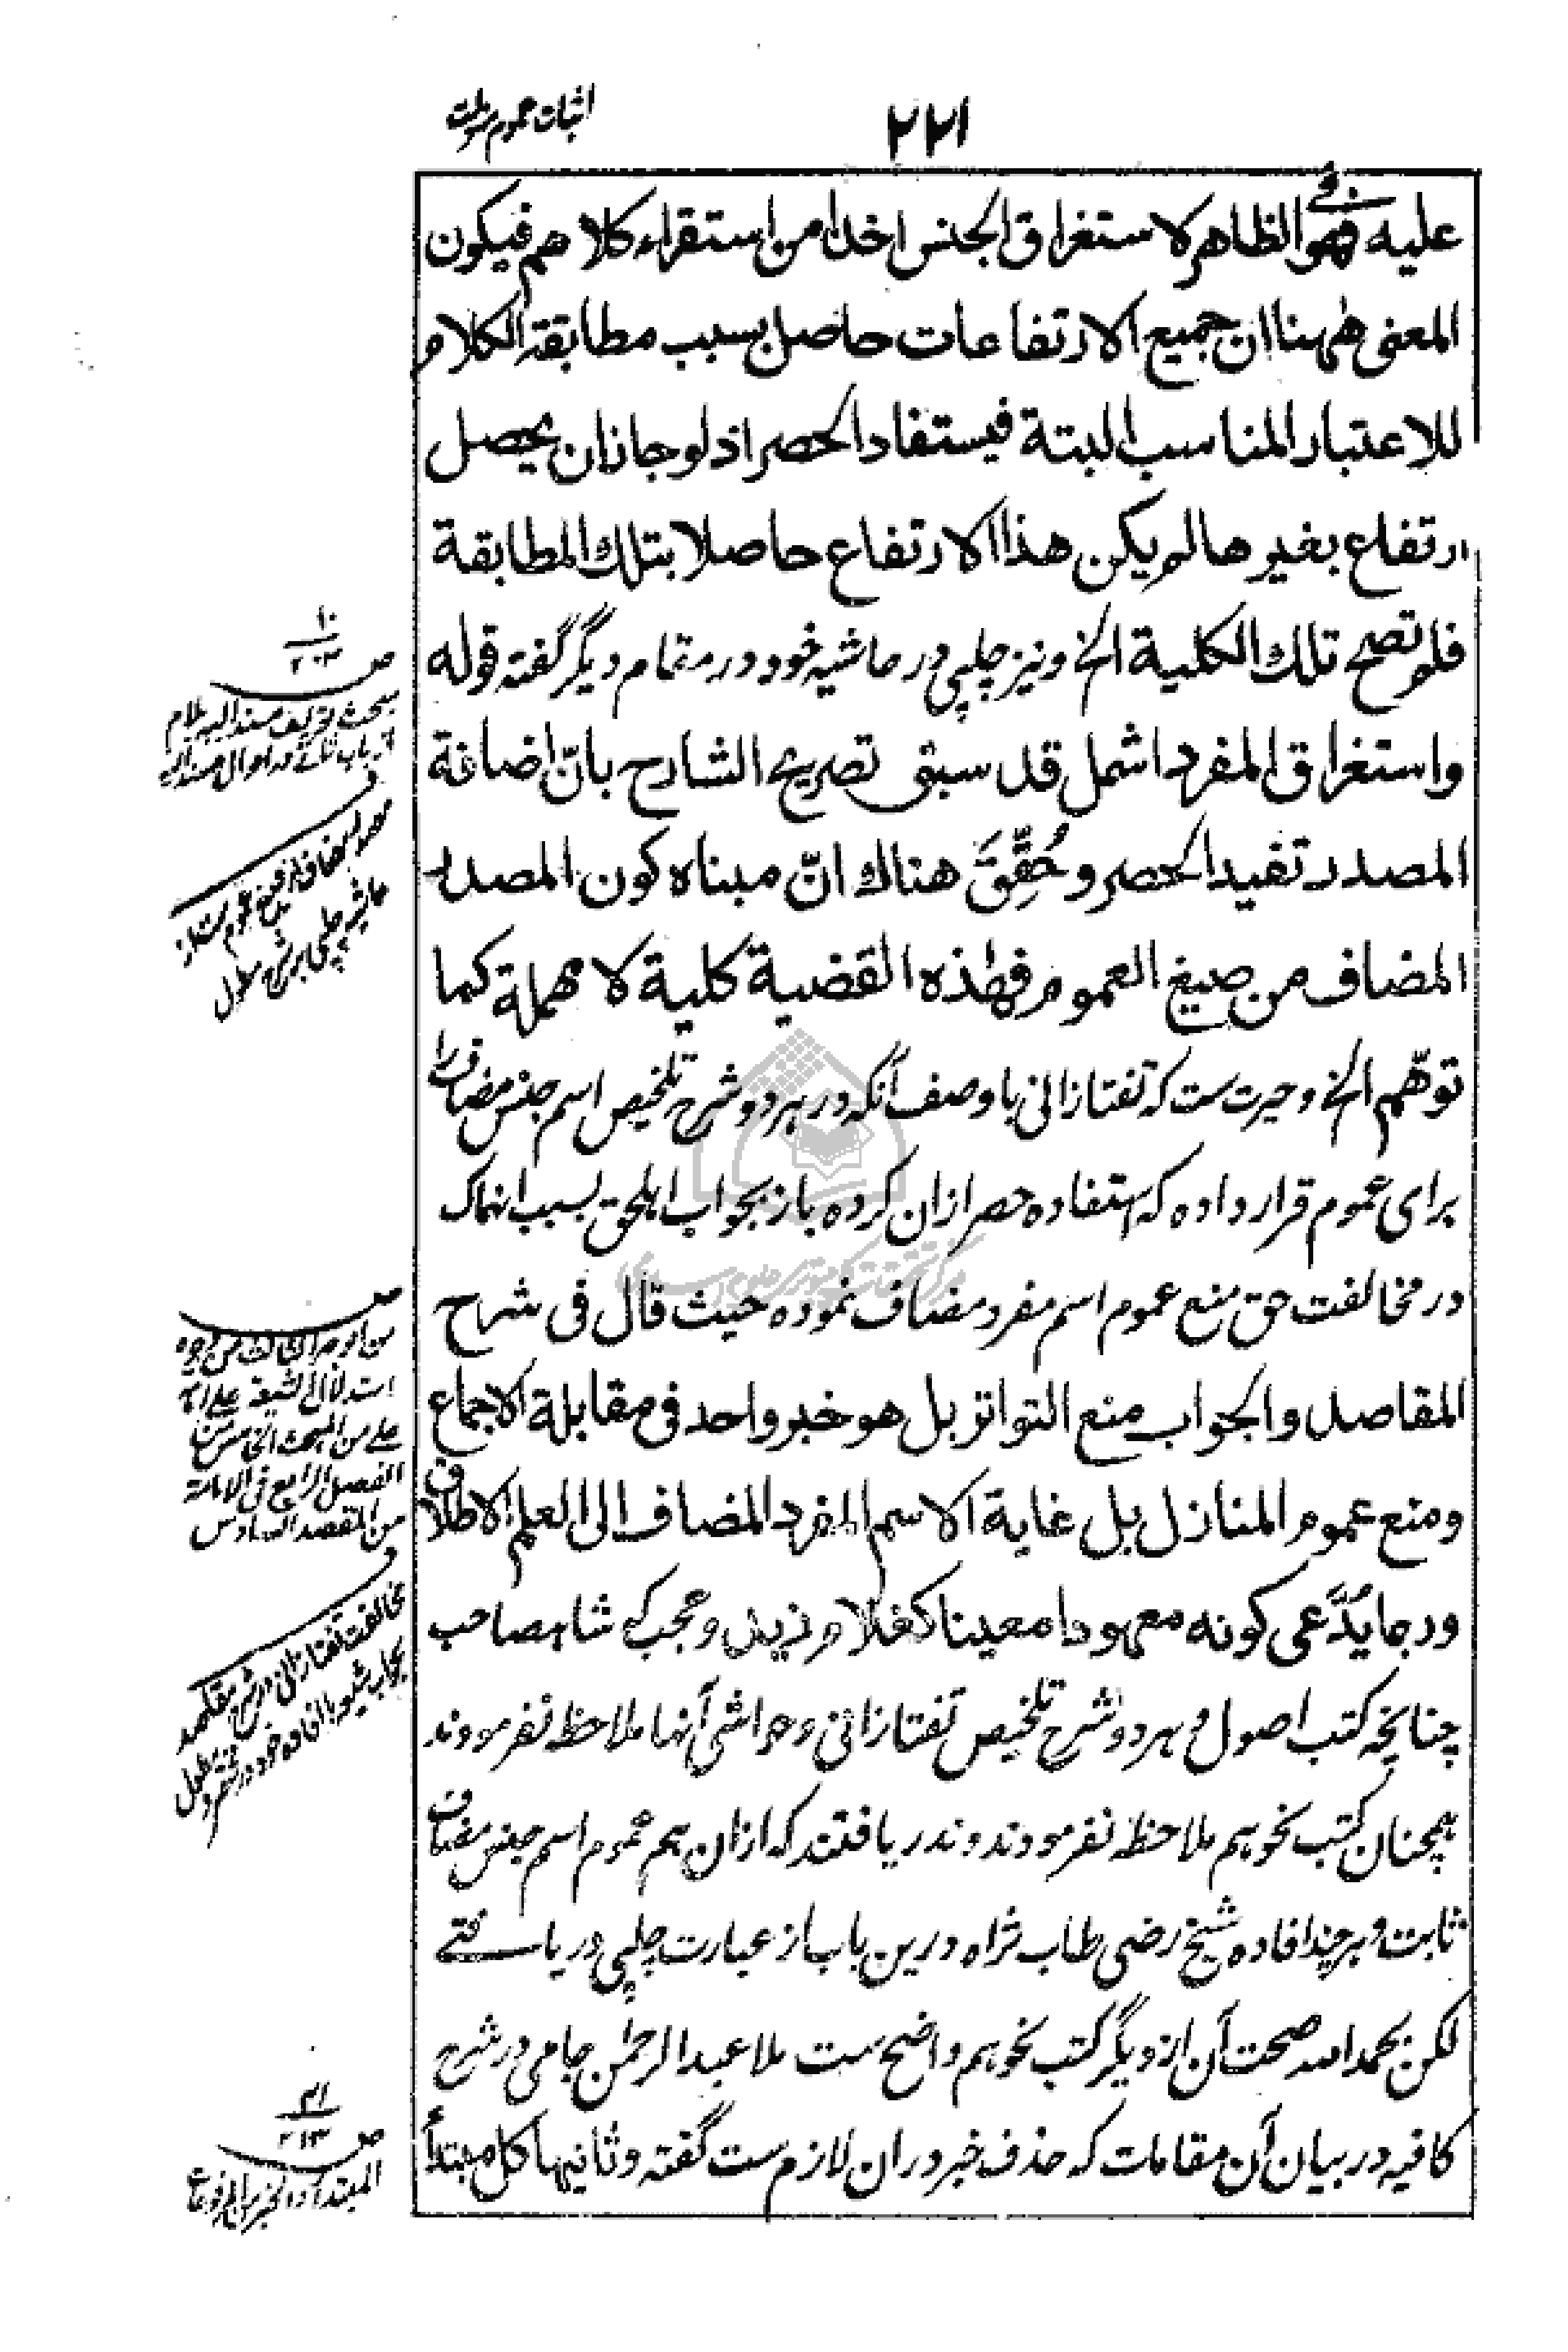 ۲۲۱
اثبات عموم منزلت
عليه شئ فهو الظاهر لاستغراق الجنس اخذا من استقراء كلامهم فيكون
المعنى ههنا ان جميع الارتفاعات حاصل بسبب مطابقة الكلام
للاعتبار المناسب البتة فيستفاد الحصر اذ لو جاز ان يحصل
ارتفاع بغيرها لم يكن هذا الارتفاع حاصلا بتلك المطابقة
فلم تصح تلك الكلية الخ ونیز چلپی در حاشیه خود در مقام دیگر گفته قوله
واستغراق المفرد اشمل قد سبق تصريح الشارح بانّ اضافة
المصدر تفيد الحصر وحُقِّقَ هناك انّ مبناه كون المصدر
المضاف من صيغ العموم فهذه القضية كلية لا مهملة كما
توهّم الخ وحیرت ست که تفتازانی با وصف آنکه در هر دو شرح تلخیص اسم جنس مضاف را
برای عموم قرار داده که استفاده حصر ازان کرده باز بجواب اهل حق بسبب انهماک
در مخالفت حق منع عموم اسم مفرد مضاف نموده حیث قال فی شرح
المقاصد والجواب منع التواتر بل هو خبر واحد فى مقابلة الاجماع
ومنع عموم المنازل بل غاية الاسم المفرد المضاف الى العلم الاطلاق
وربما يُدَّعى كونه معهودا معينا كغلام زيد وعجب که شاهصاحب
چنانچه کتب اصول و هر دو شرح تلخیص تفتازانی و حواشی آنها ملاحظه نفرمودند
همچنان کتب نحو هم ملاحظه نفرمودند و ندریافتند که ازان هم عموم اسم جنس مضاف
ثابت و هر چند افاده شیخ رضی طاب ثراه درین باب از عبارت چلپی دریافتی
لکن بحمد الله صحت آن از دیگر کتب نحو هم واضح ست ملا عبد الرحمٰن جامی در شرح
کافیه در بیان آن مقامات که حذف خبر دران لازم ست گفته وثانيها كل مبتدأ
۱۰
۲۰۳
بحث تعریف مسند الیه بلام
از باب ثانی در احوال مسند الیه
حاشیه چلپی بر شرح مطول
من الوجه الثالث من وجوه
استدلال الشیعة علی امامة
علی من المبحث الخامس من
الفصل الرابع فی الامامة
من المقصد السادس
مخالفت تفتازانی در شرح مقاصد
بجواب شیعه با افاده خود در مختصر و مطول
۳۱
۲۱۳
المبتدأ والخبر من المرفوعات